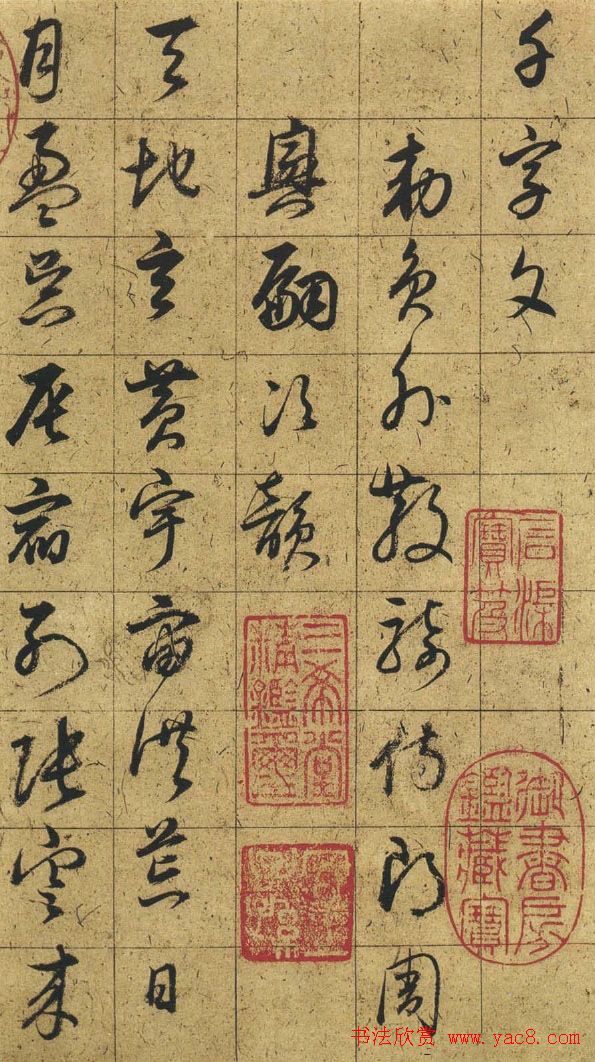 千字文
勅員外散騎侍郎周
興嗣次韻
天地玄黃宇宙洪荒日
月盈昃辰宿列張寒來
石渠寶笈
御書房鑑藏寶
三希堂精鑑璽
书法欣赏 www.yac8.com